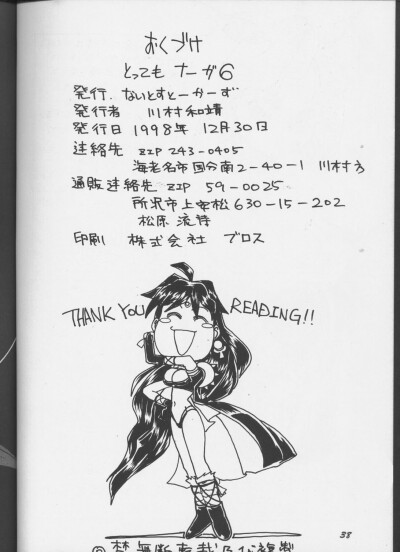 おくづけ
とっても ナーガ6
発行. ないとすとーかーず
発行者 川村和靖
発行日 1998年 12月30日
連絡先 ZIP 243-0405
海老名市国分南2-40-1 川村方
通販連絡先 ZIP 59-0025
所沢市上安松630-15-202
松原
印刷 株式会社 ブロス
THANK YOU READING!!
38
禁無断転載及び複製